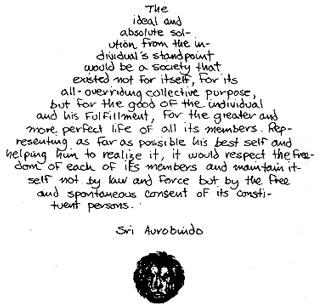 The
ideal and
absolute sol-
ution from the in-
dividual's standpoint
would be a society that
existed not for itself, for its
all-overriding collective purpose,
but for the good of the individual
and his fulfillment, for the greater and
more perfect life of all its members. Rep-
resenting as far as possible his best self and
helping him to realize it, it would respect the free-
dom of each of its members and maintain it-
self not by law and force but by the free
and spontaneous consent of its consti-
tuent persons.
Sri Aurobindo